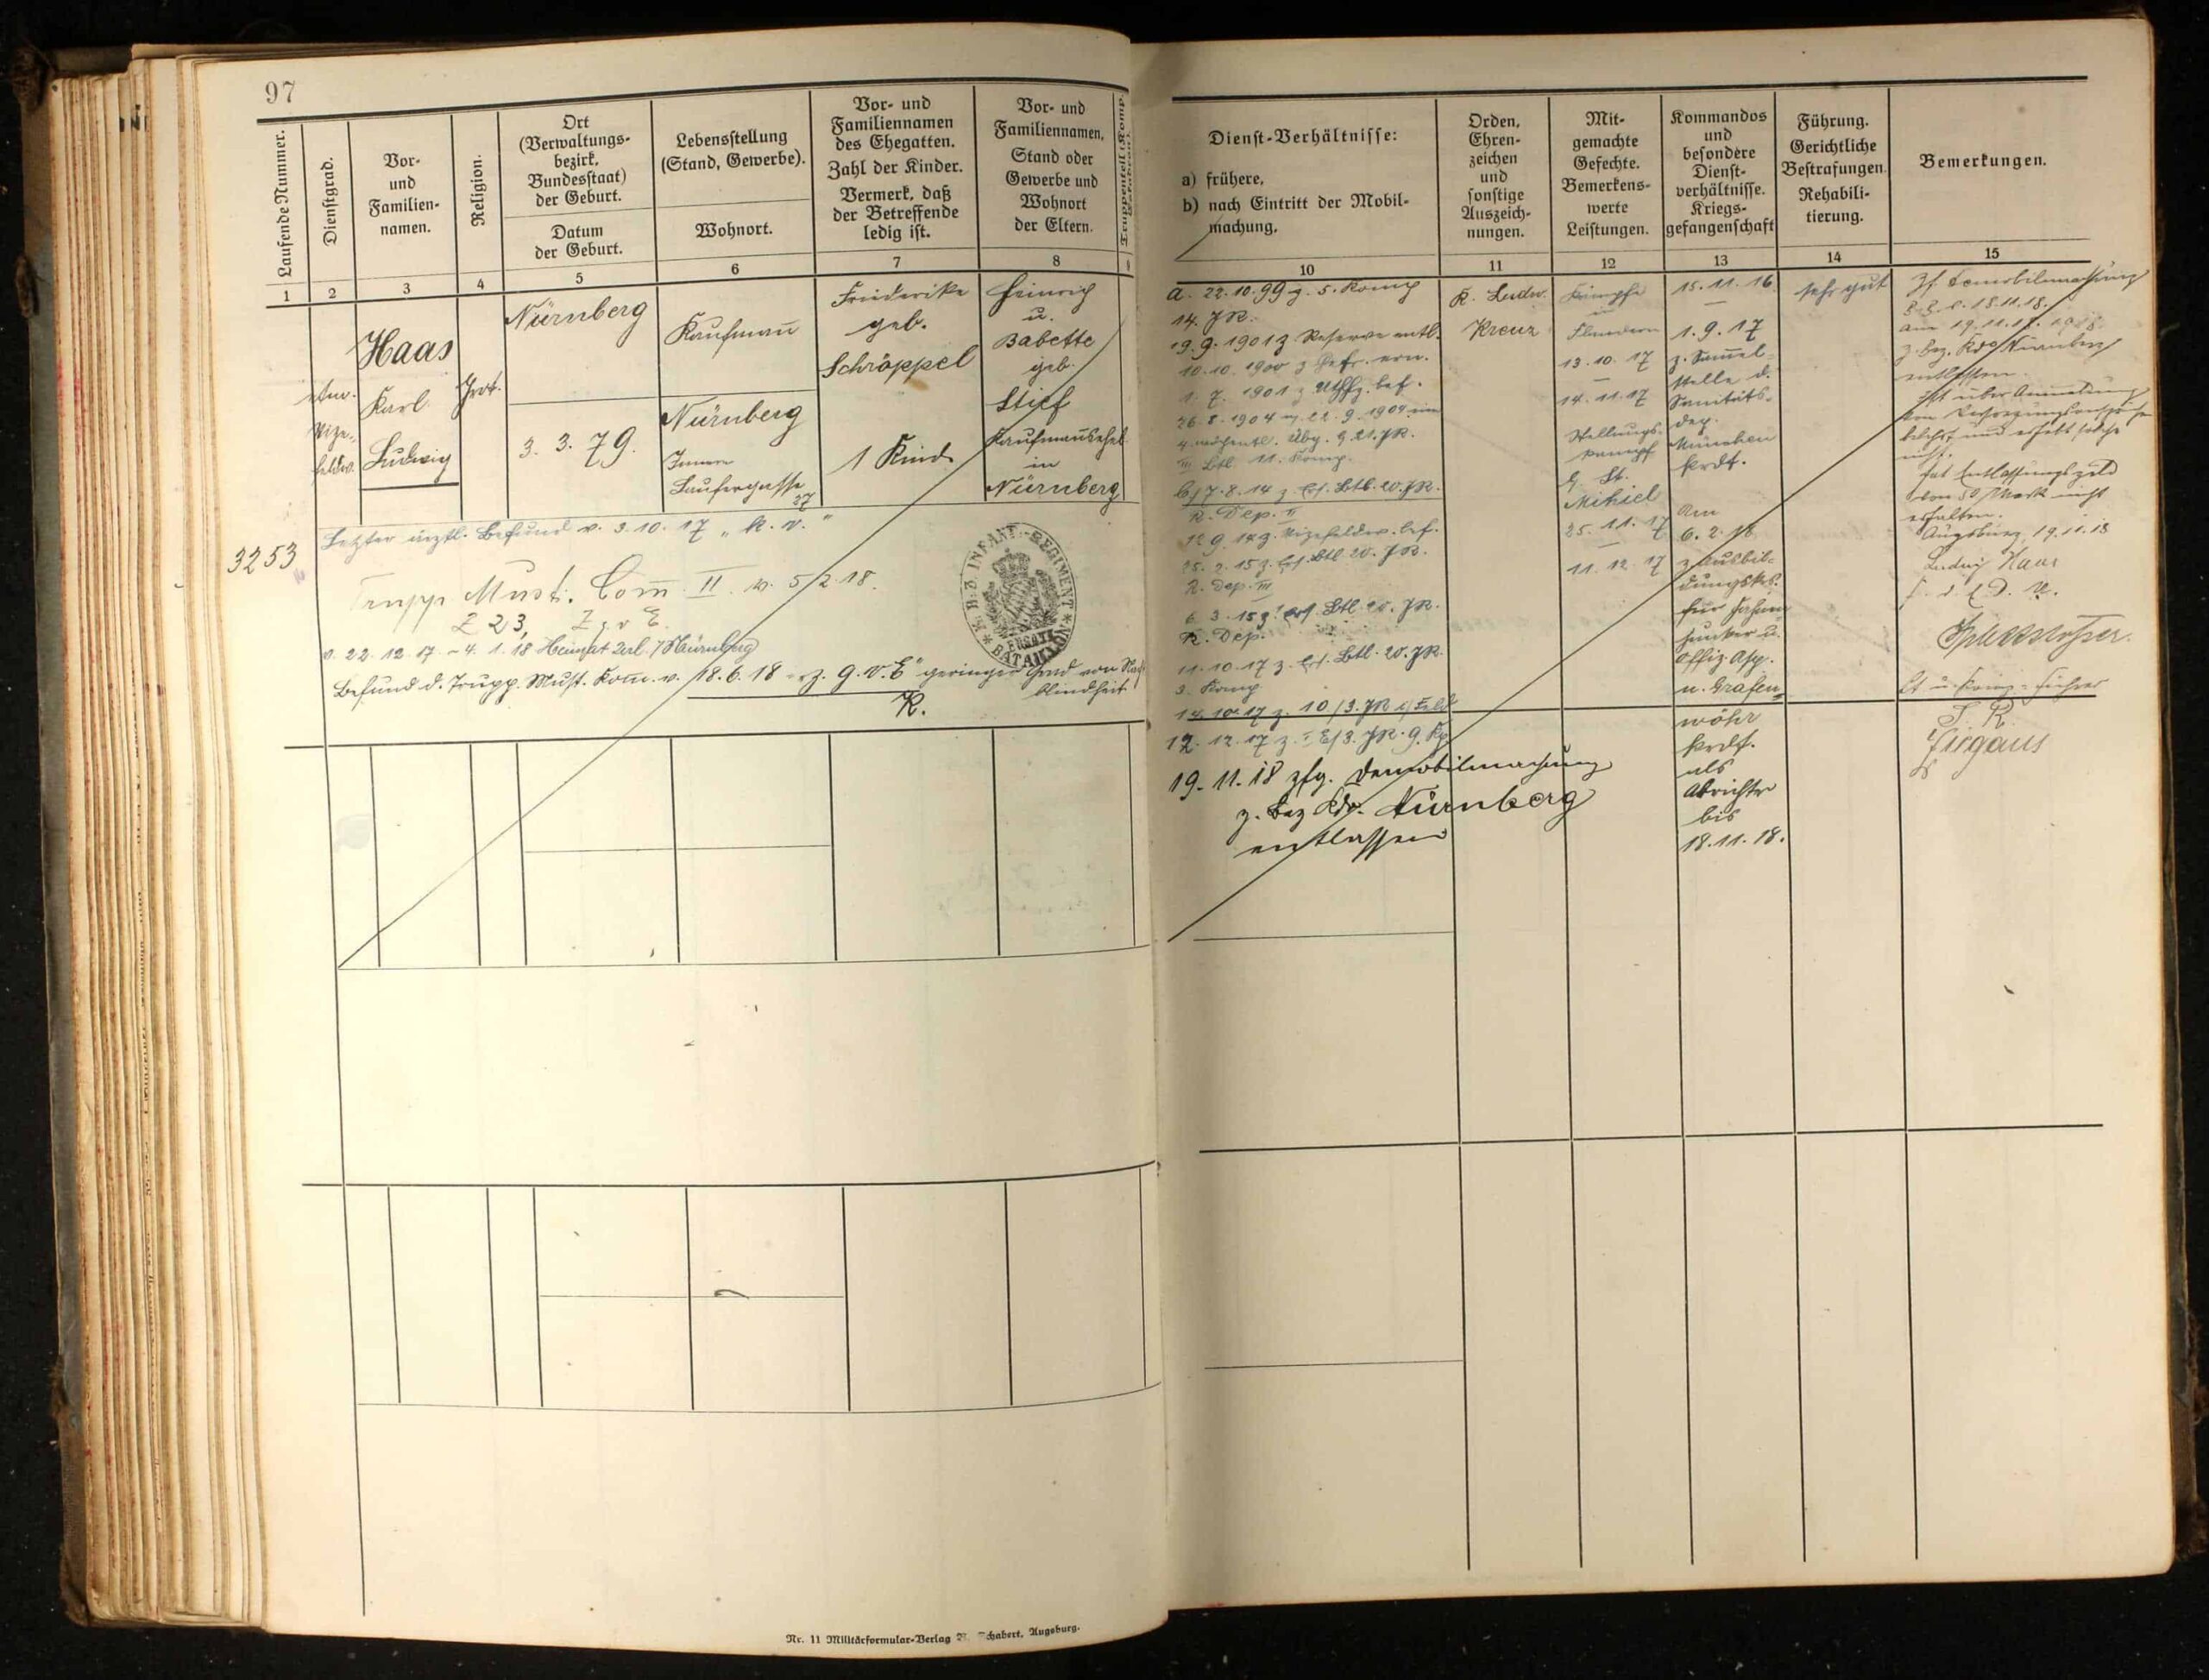 97
Laufende Nummer.
Dienstgrad.
Vor-
und
Familien-
namen.
Religion.
Ort
(Verwaltungs-
bezirk,
Bundesstaat)
der Geburt.
Datum
der Geburt.
Lebensstellung
(Stand, Gewerbe).
Wohnort.
Vor- und
Familiennamen
des Ehegatten.
Zahl der Kinder.
Vermerk, daß
der Betreffende
ledig ist.
Vor- und
Familiennamen,
Stand oder
Gewerbe und
Wohnort
der Eltern.
Truppenteil (Komp.
1 2 3 4 5 6 7 8
3253
Vize-
feldw.
Haas
Karl
Ludwig
Prot.
Nürnberg
3. 3. 79.
Kaufmañ
Nürnberg
Innere
Laufergasse
27
Friederike
geb.
Schröppel
1 Kind
Heinrich
u.
Babette
geb.
Stief
Kaufmannsehel.
in
Nürnberg
Letzter ärztl. Befund v. 3.10.17 „k. v."
Trupp Must. Com̃ II v. 5/2 18.
Z 23, Z g v E.
v. 22. 12. 17. – 4. 1. 18 Heimat Url. / Nürnberg
Befund d. Trupp. Must. Kom̃. v. 18.6.18 „z. g. v. E" geringer Grad von Nacht-
blindheit
R.
K. B. 3. INFANT.-REGIMENT
ERSATZ
BATAILLON
Nr. 11 Militärformular-Verlag Schabert, Augsburg.
Dienst-Verhältnisse:
a) frühere,
b) nach Eintritt der Mobil-
machung.
Orden,
Ehren-
zeichen
und
sonstige
Auszeich-
nungen.
Mit-
gemachte
Gefechte.
Bemerkens-
werte
Leistungen.
Kommandos
und
besondere
Dienst-
verhältnisse.
Kriegs-
gefangenschaft
Führung.
Gerichtliche
Bestrafungen.
Rehabili-
tierung.
Bemerkungen.
10 11 12 13 14 15
a. 22.10.99 z. 5. Komp
14. JR.
19. 9. 1901 z Reserve entl.
10.10. 1900 z Gefr. ern.
1. 7. 1901 z Utffz. bef.
26.8.1904 22.9.1904
4 wöchentl. Übg. 21. JR.
III Btl 11. Komp.
b/ 7.8.14 z. Ers. Btl. 20. JR.
R. Dep. II
12 9. 14 z. Vizefeldw. bef.
25. 2. 15 z. Ers. Btl 20. JR.
R. Dep. III
6. 3. 15 z. Ers. Btl. 20. JR.
R. Dep.
11.10.17 z. Ers. Btl. 20. JR.
3. Komp
14.10.17 z. 10/3. JR i/Feld
12. 12. 17 z. I E/3. JR. 9. Kp
19. 11. 18 zfg. Demobilmachung
z. Bez Kdo. Nürnberg
entlassen
K. Ludw.
Kreuz
Kämpfe
in
Flandern
13. 10. 17
–
14. 11. 17
Stellungs-
kampf
b. St.
Mihiel
25. 11. 17
–
11. 12. 17
15. 11. 16
–
1. 9. 17
z. Sam̃el-
stelle d.
Sanitäts-
dep.
München
kdt.
Am
6. 2. 18
z. Ausbil-
dungskrs.
für Fahnen-
junker u.
Offiz. Asp.
n. Grafen-
wöhr
kdt.
als
Abrichter
bis
18.11.18.
sehr gut
Zf. Demobilmachung
am 19.11.18
z. Bez. Kdo Nürnberg
entlassen.
Ist über Anmeldung
von Versorgungsansprüchen
belehrt und erhebt solche
nicht.
Hat Entlassungsgeld
von 50 Mark nicht
erhalten.
Augsburg, 19.11.18
Ludwig Haas